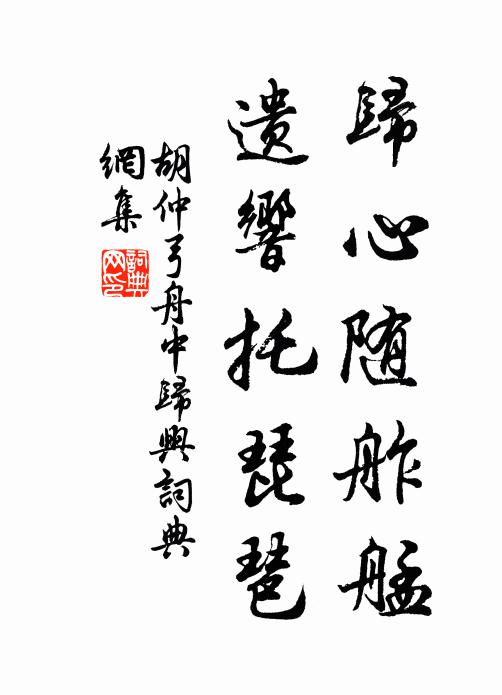 歸心随舴艋
遗響托琵琶
胡仲弓舟中歸興詞典
網集
詞典网印